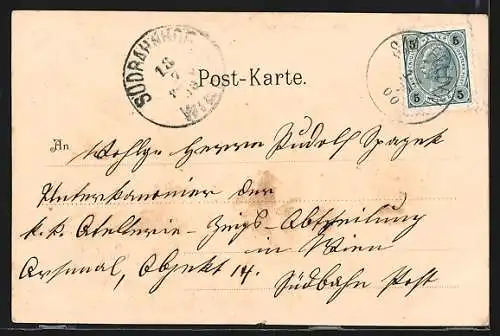 SÜDBAHNHOF
18
7
WIEN
Post-Karte.
5 5
5 5
00
An Wohlge Herrn Rudolf Sparapan
Unterkanonier der
k. k. Atellerie-Zeigs-Abtheilung
in Wien
Arsenal, Objekt 14. Südbahn Post